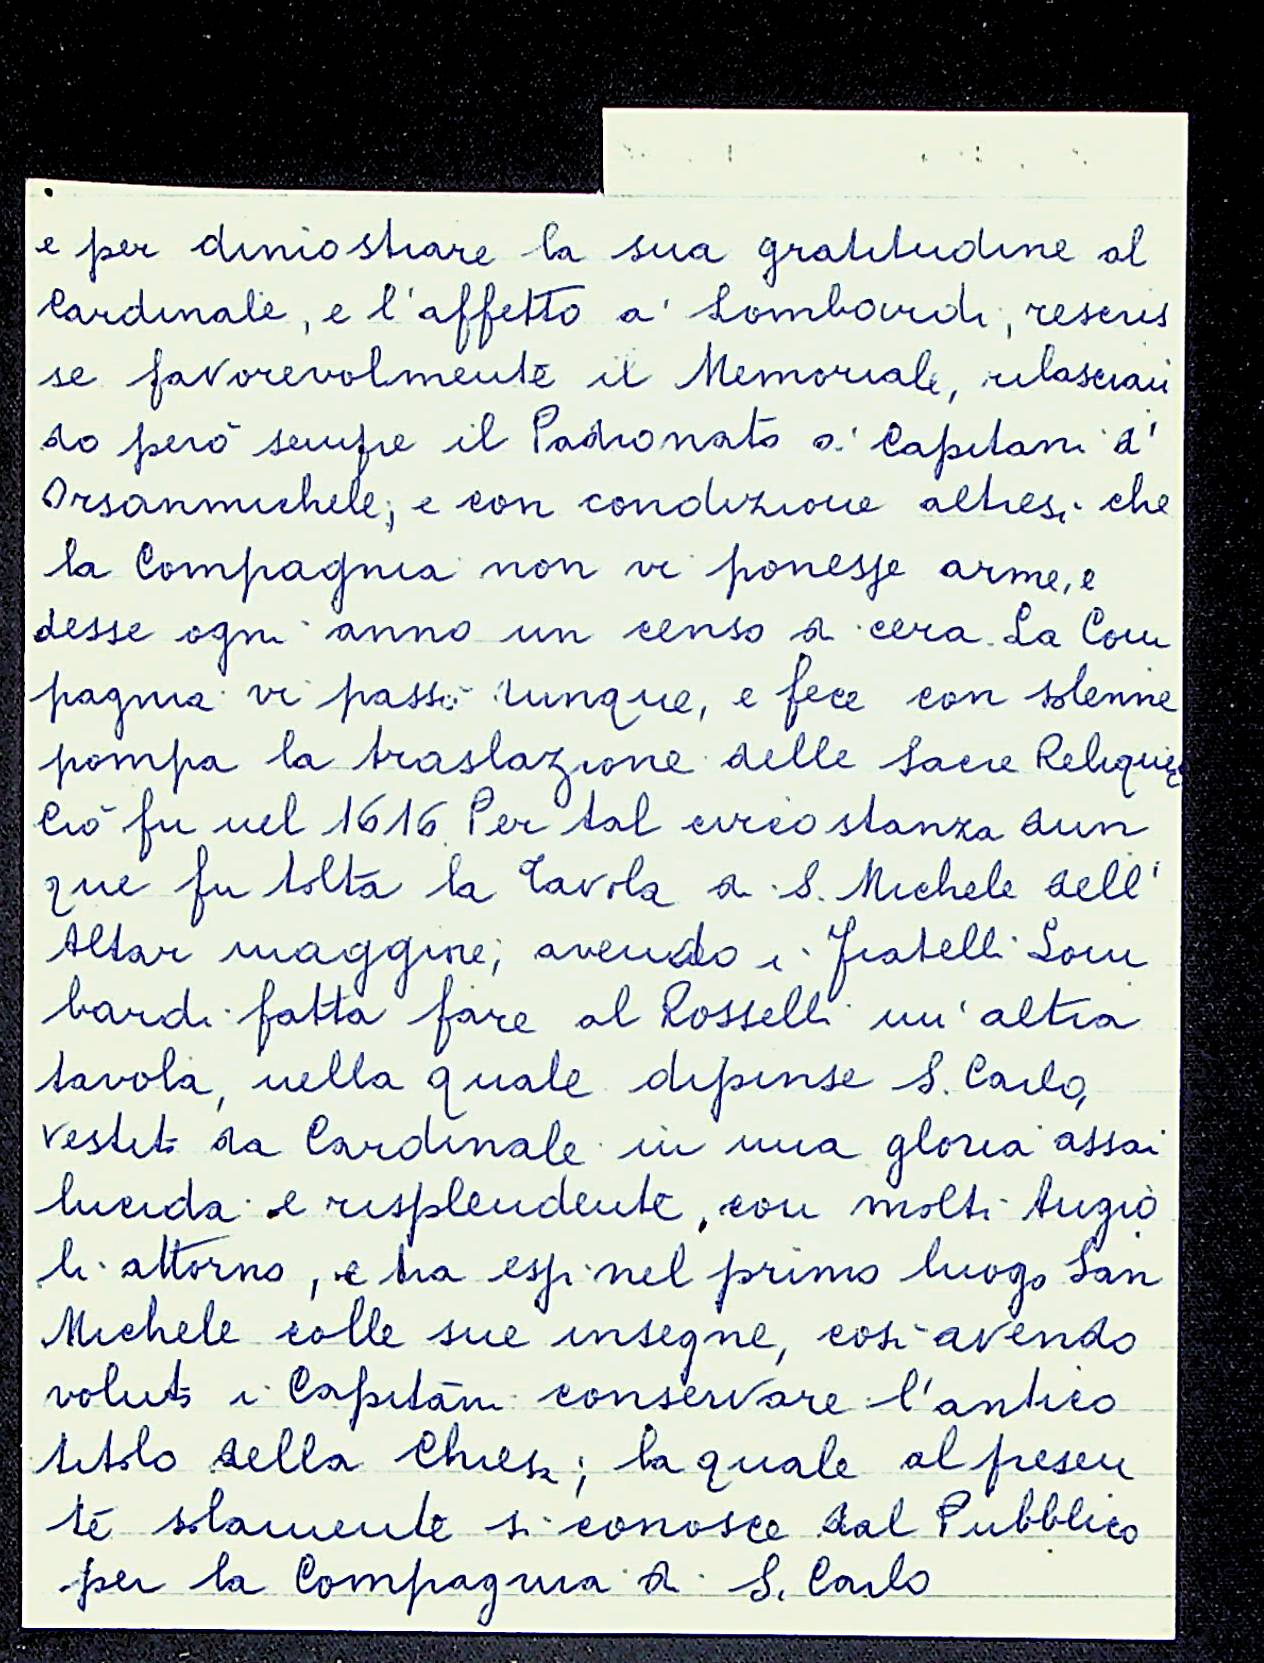 e per dimostrare la sua gratitudine al
Cardinale, e l'affetto a' Lombardi, rescris
se favorevolmente il Memoriale, rilascian
do però sempre il Padronato a' Capitani d'
Orsanmichele; e con condizione altresi che
la Compagnia non vi ponesse arme, e
desse ogni anno un censo di cera. La Com
pagnia vi passò dunque, e fece con solenne
pompa la traslazione delle Sacre Reliquie
Ciò fu nel 1616. Per tal circostanza dun
que fu tolta la Tavola di S. Michele dell'
Altar maggiore; avendo i Fratelli Lom
bardi fatta fare al Rosselli un'altra
tavola, nella quale dipinse S. Carlo,
vestito da Cardinale in una gloria assai
lucida e risplendente, con molti Angio
li attorno, e tra essi nel primo luogo San
Michele colle sue insegne, così avendo
voluto i Capitani conservare l'antico
titolo della Chiesa; la quale al presen
te solamente si conosce dal Pubblico
per la Compagnia di S. Carlo